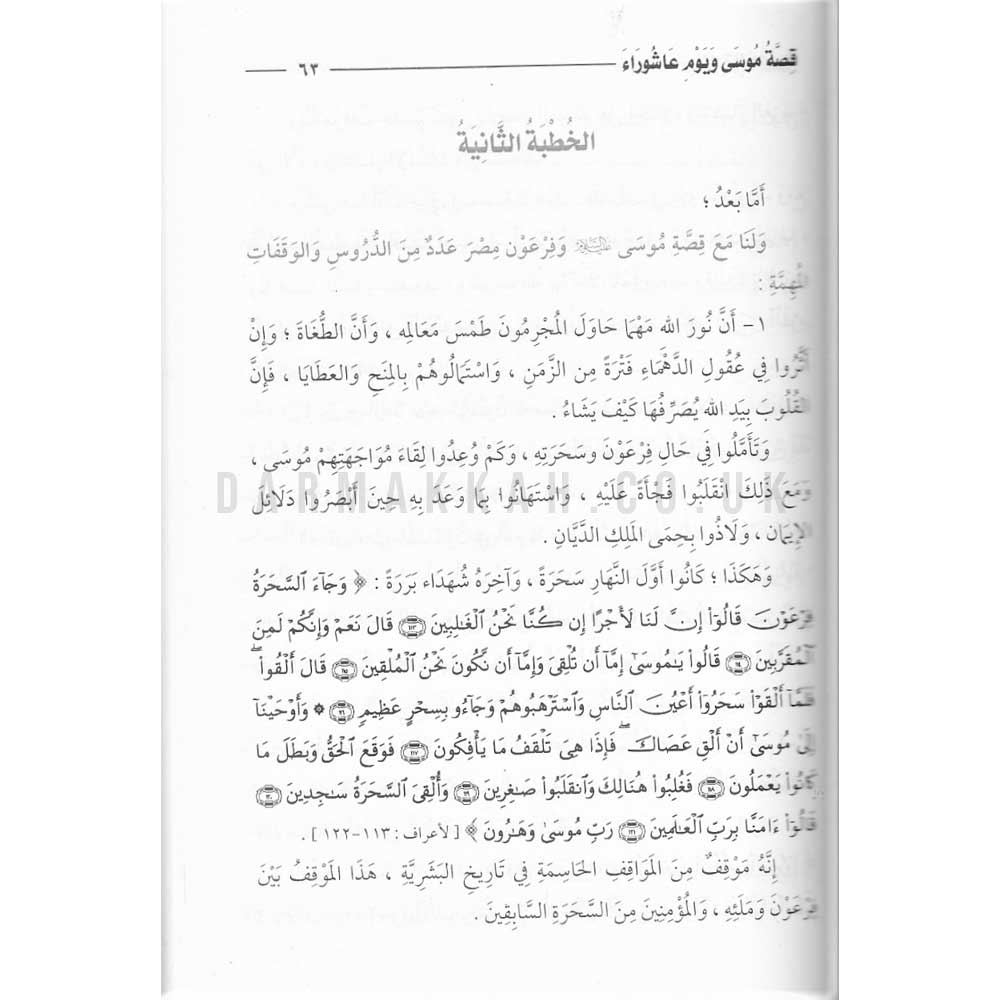 قِصَّةُ مُوسَى وَيَوْمِ عَاشُورَاءَ ٦٣
الخُطْبَةُ الثَّانِيَةُ
أَمَّا بَعْدُ ؛
وَلَنَا مَعَ قِصَّةِ مُوسَى عليه السلام وَفِرْعَوْن مِصْرَ عَدَدٌ مِنَ الدُّرُوسِ وَالوَقَفَاتِ
المُهِمَّةِ :
١- أَنَّ نُورَ الله مَهْمَا حَاوَلَ المُجْرِمُونَ طَمْسَ مَعَالِمِه ، وَأَنَّ الطُّغَاةَ ؛ وَإِنْ
أَثَّرُوا فِي عُقُولِ الدَّهْمَاءِ فَتْرَةً مِن الزَّمَنِ ، وَاسْتَمَالُوهُمْ بِالمِنَحِ وَالعَطَايَا ، فَإِنَّ
القُلُوبَ بِيَدِ الله يُصَرِّفُهَا كَيْفَ يَشَاءُ .
وَتَأَمَّلُوا فِي حَالِ فِرْعَوْنَ وَسَحَرَتِهِ ، وَكَمْ وُعِدُوا لِقَاءَ مُوَاجَهَتِهِمْ مُوسَى ،
DARMAKKAH.CO.UK
وَمَعَ ذَلِكَ انْقَلَبُوا فَجْأَةً عَلَيْهِ ، وَاسْتَهَانُوا بِمَا وَعَدَ بِهِ حِينَ أَبْصَرُوا دَلَائِلَ
الإِيمَان ، وَلَاذُوا بِحِمَى المَلِكِ الدَّيَّانِ .
وَهَكَذَا ؛ كَانُوا أَوَّلَ النَّهَارِ سَحَرَةً ، وَآخِرَهُ شُهَدَاء بَرَرَةً : ﴿ وَجَآءَ ٱلسَّحَرَةُ
فِرْعَوْنَ قَالُوٓا۟ إِنَّ لَنَا لَأَجْرًا إِن كُنَّا نَحْنُ ٱلْغَٰلِبِينَ ﴿١١٣﴾ قَالَ نَعَمْ وَإِنَّكُمْ لَمِنَ
ٱلْمُقَرَّبِينَ ﴿١١٤﴾ قَالُوا۟ يَٰمُوسَىٰٓ إِمَّآ أَن تُلْقِىَ وَإِمَّآ أَن نَّكُونَ نَحْنُ ٱلْمُلْقِينَ ﴿١١٥﴾ قَالَ أَلْقُوا۟ ۖ
فَلَمَّآ أَلْقَوْا۟ سَحَرُوٓا۟ أَعْيُنَ ٱلنَّاسِ وَٱسْتَرْهَبُوهُمْ وَجَآءُو بِسِحْرٍ عَظِيمٍ ﴿١١٦﴾ ۞ وَأَوْحَيْنَآ
إِلَىٰ مُوسَىٰٓ أَنْ أَلْقِ عَصَاكَ ۖ فَإِذَا هِىَ تَلْقَفُ مَا يَأْفِكُونَ ﴿١١٧﴾ فَوَقَعَ ٱلْحَقُّ وَبَطَلَ مَا
كَانُوا۟ يَعْمَلُونَ ﴿١١٨﴾ فَغُلِبُوا۟ هُنَالِكَ وَٱنقَلَبُوا۟ صَٰغِرِينَ ﴿١١٩﴾ وَأُلْقِىَ ٱلسَّحَرَةُ سَٰجِدِينَ ﴿١٢٠﴾
قَالُوٓا۟ ءَامَنَّا بِرَبِّ ٱلْعَٰلَمِينَ ﴿١٢١﴾ رَبِّ مُوسَىٰ وَهَٰرُونَ ﴾ [ لأعراف : ١١٣-١٢٢ ] .
إِنَّهُ مَوْقِفٌ مِنَ المَوَاقِفِ الحَاسِمَةِ فِي تَارِيخِ البَشَرِيَّةِ ، هَذَا المَوْقِفُ بَيْنَ
فِرْعَوْنَ وَمَلَئِهِ ، وَالمُؤْمِنِينَ مِنَ السَّحَرَةِ السَّابِقِينَ .